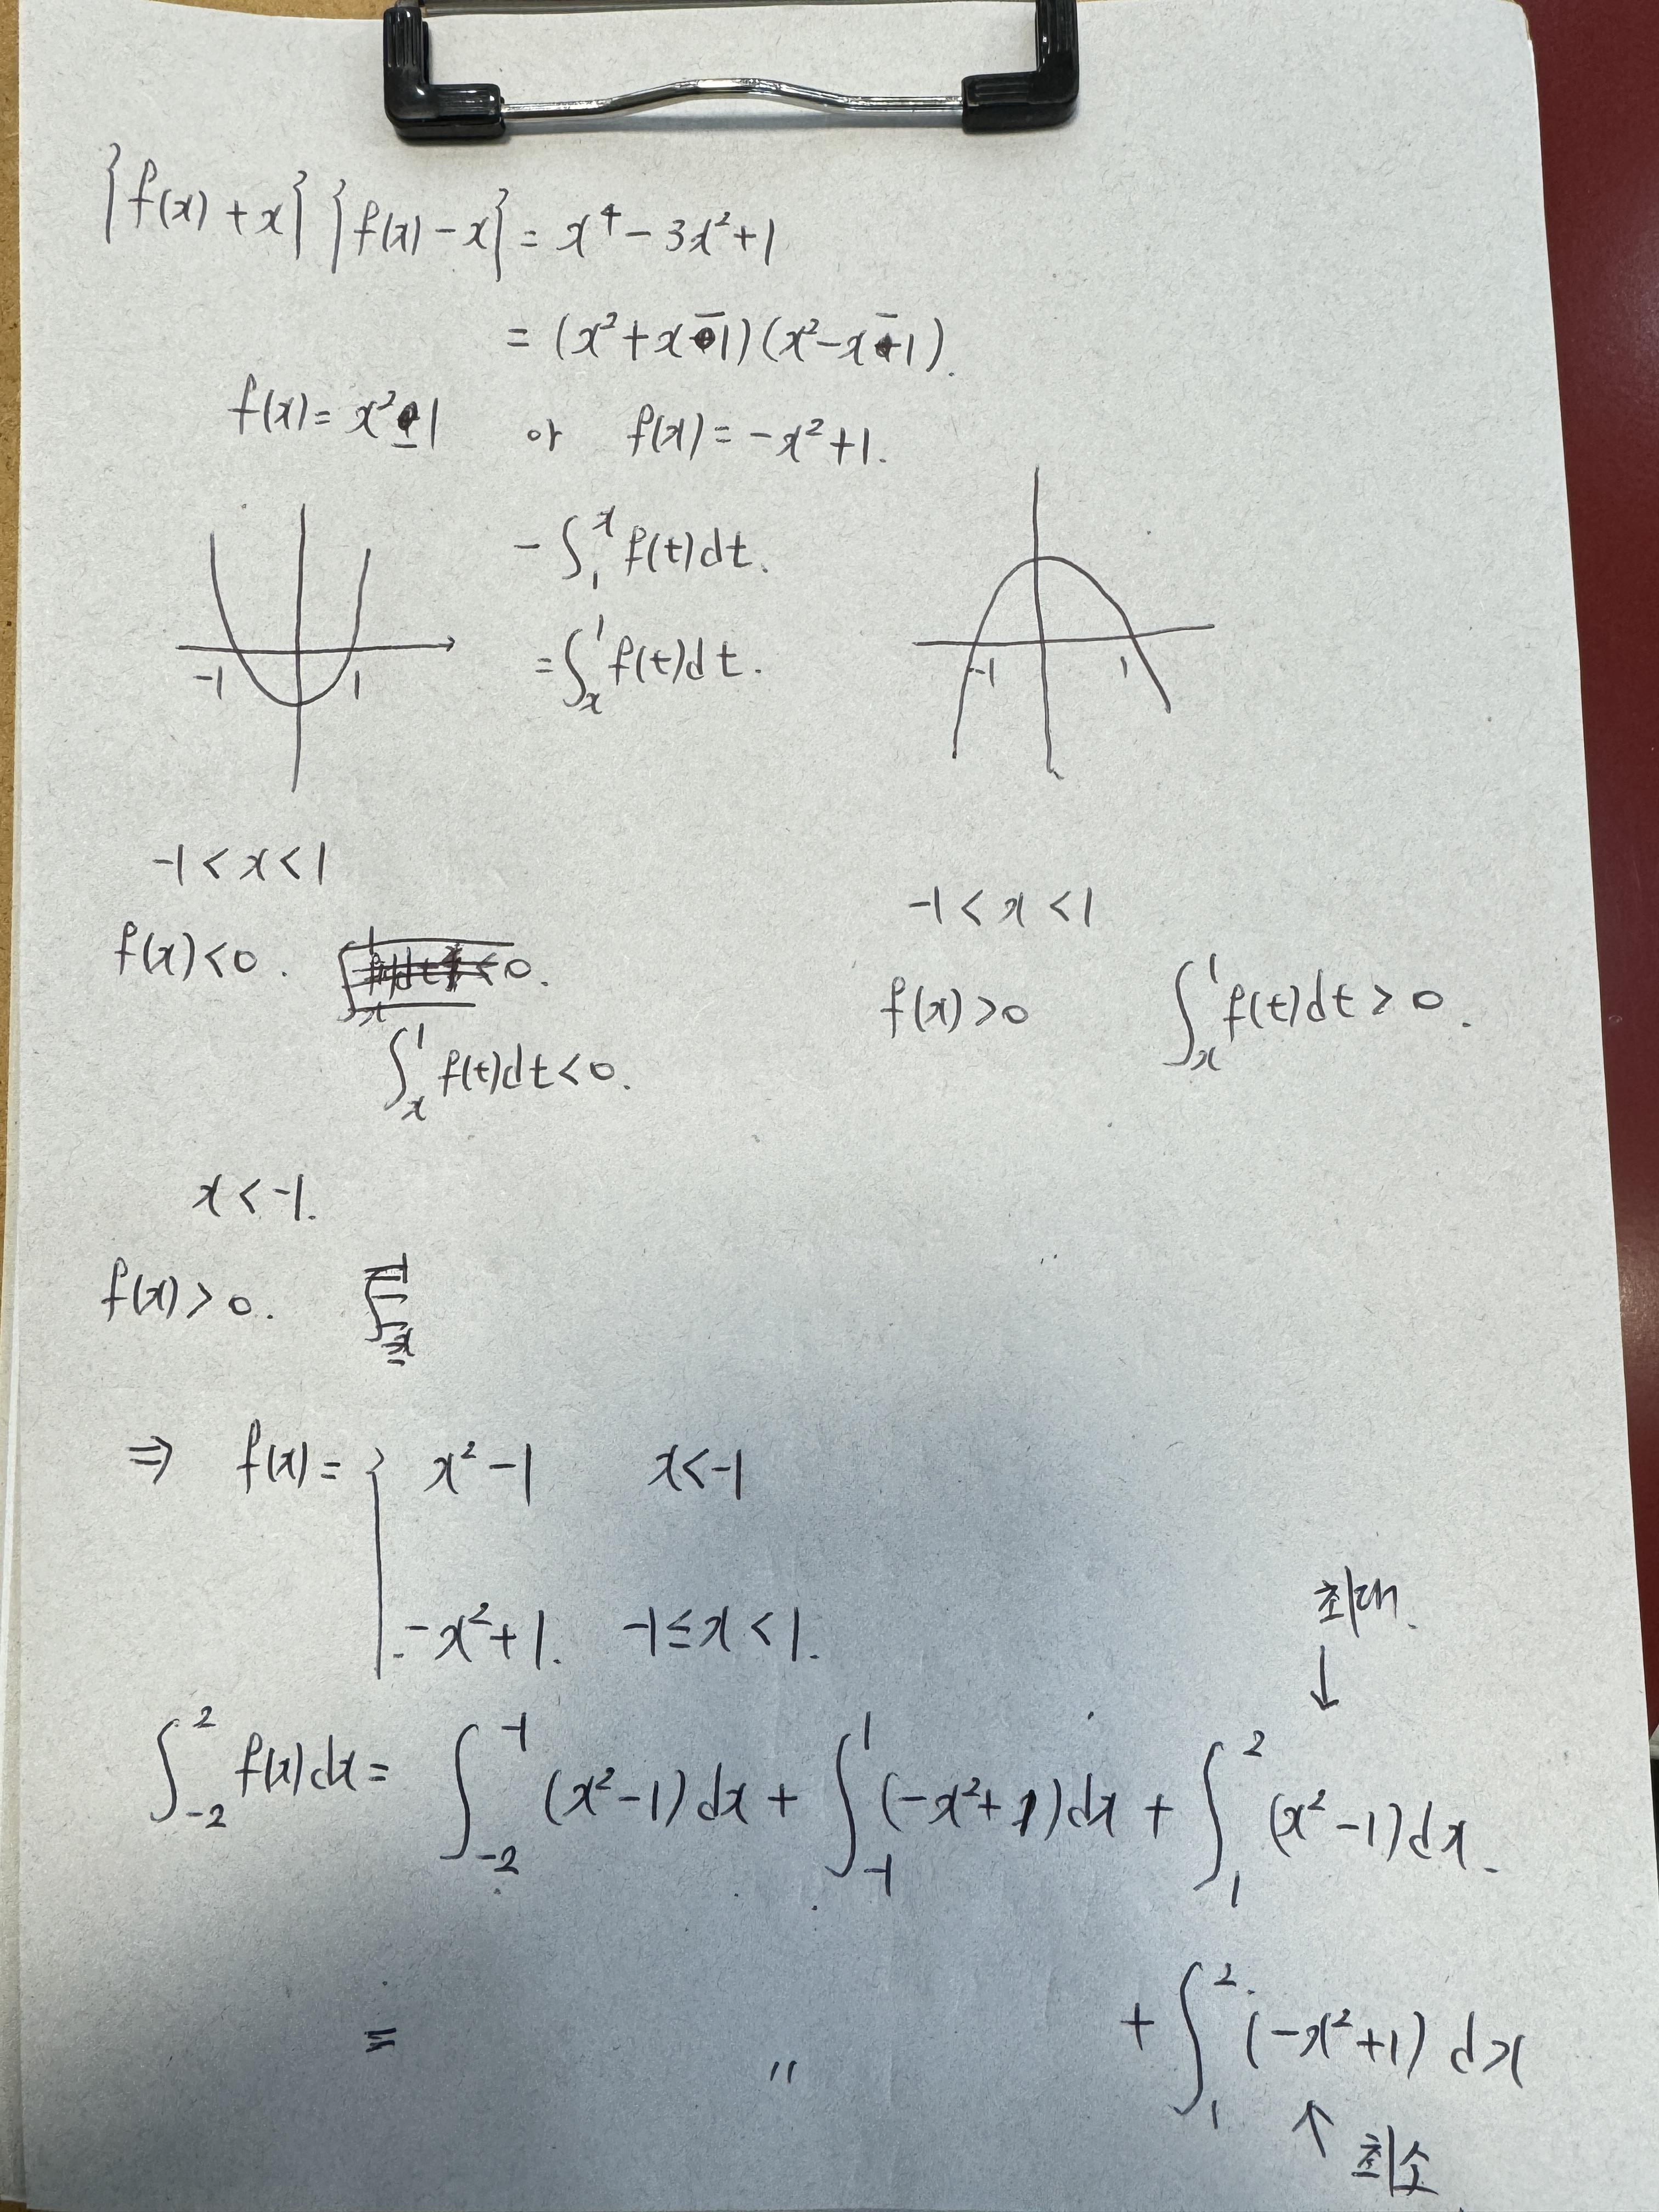 {f(x) + x} {f(x) - x} = x⁴ - 3x² + 1
= (x² + x - 1)(x² - x - 1).
f(x) = x² - 1 or f(x) = -x² + 1.
- ∫₁ˣ f(t)dt.
= ∫ₓ¹ f(t)dt.
-1 1
-1 1
-1 < x < 1
f(x) < 0.
∫ₓ¹ f(t)dt < 0.
-1 < x < 1
f(x) > 0 ∫ₓ¹ f(t)dt > 0.
x < -1.
f(x) > 0.
⇒ f(x) = { x² - 1 x < -1
-x² + 1. -1 ≤ x < 1.
최대.
↓
∫₋₂² f(x)dx = ∫₋₂⁻¹ (x² - 1)dx + ∫₋₁¹ (-x² + 1)dx + ∫₁² (x² - 1)dx.
= " + ∫₁² (-x² + 1)dx
↑ 최소